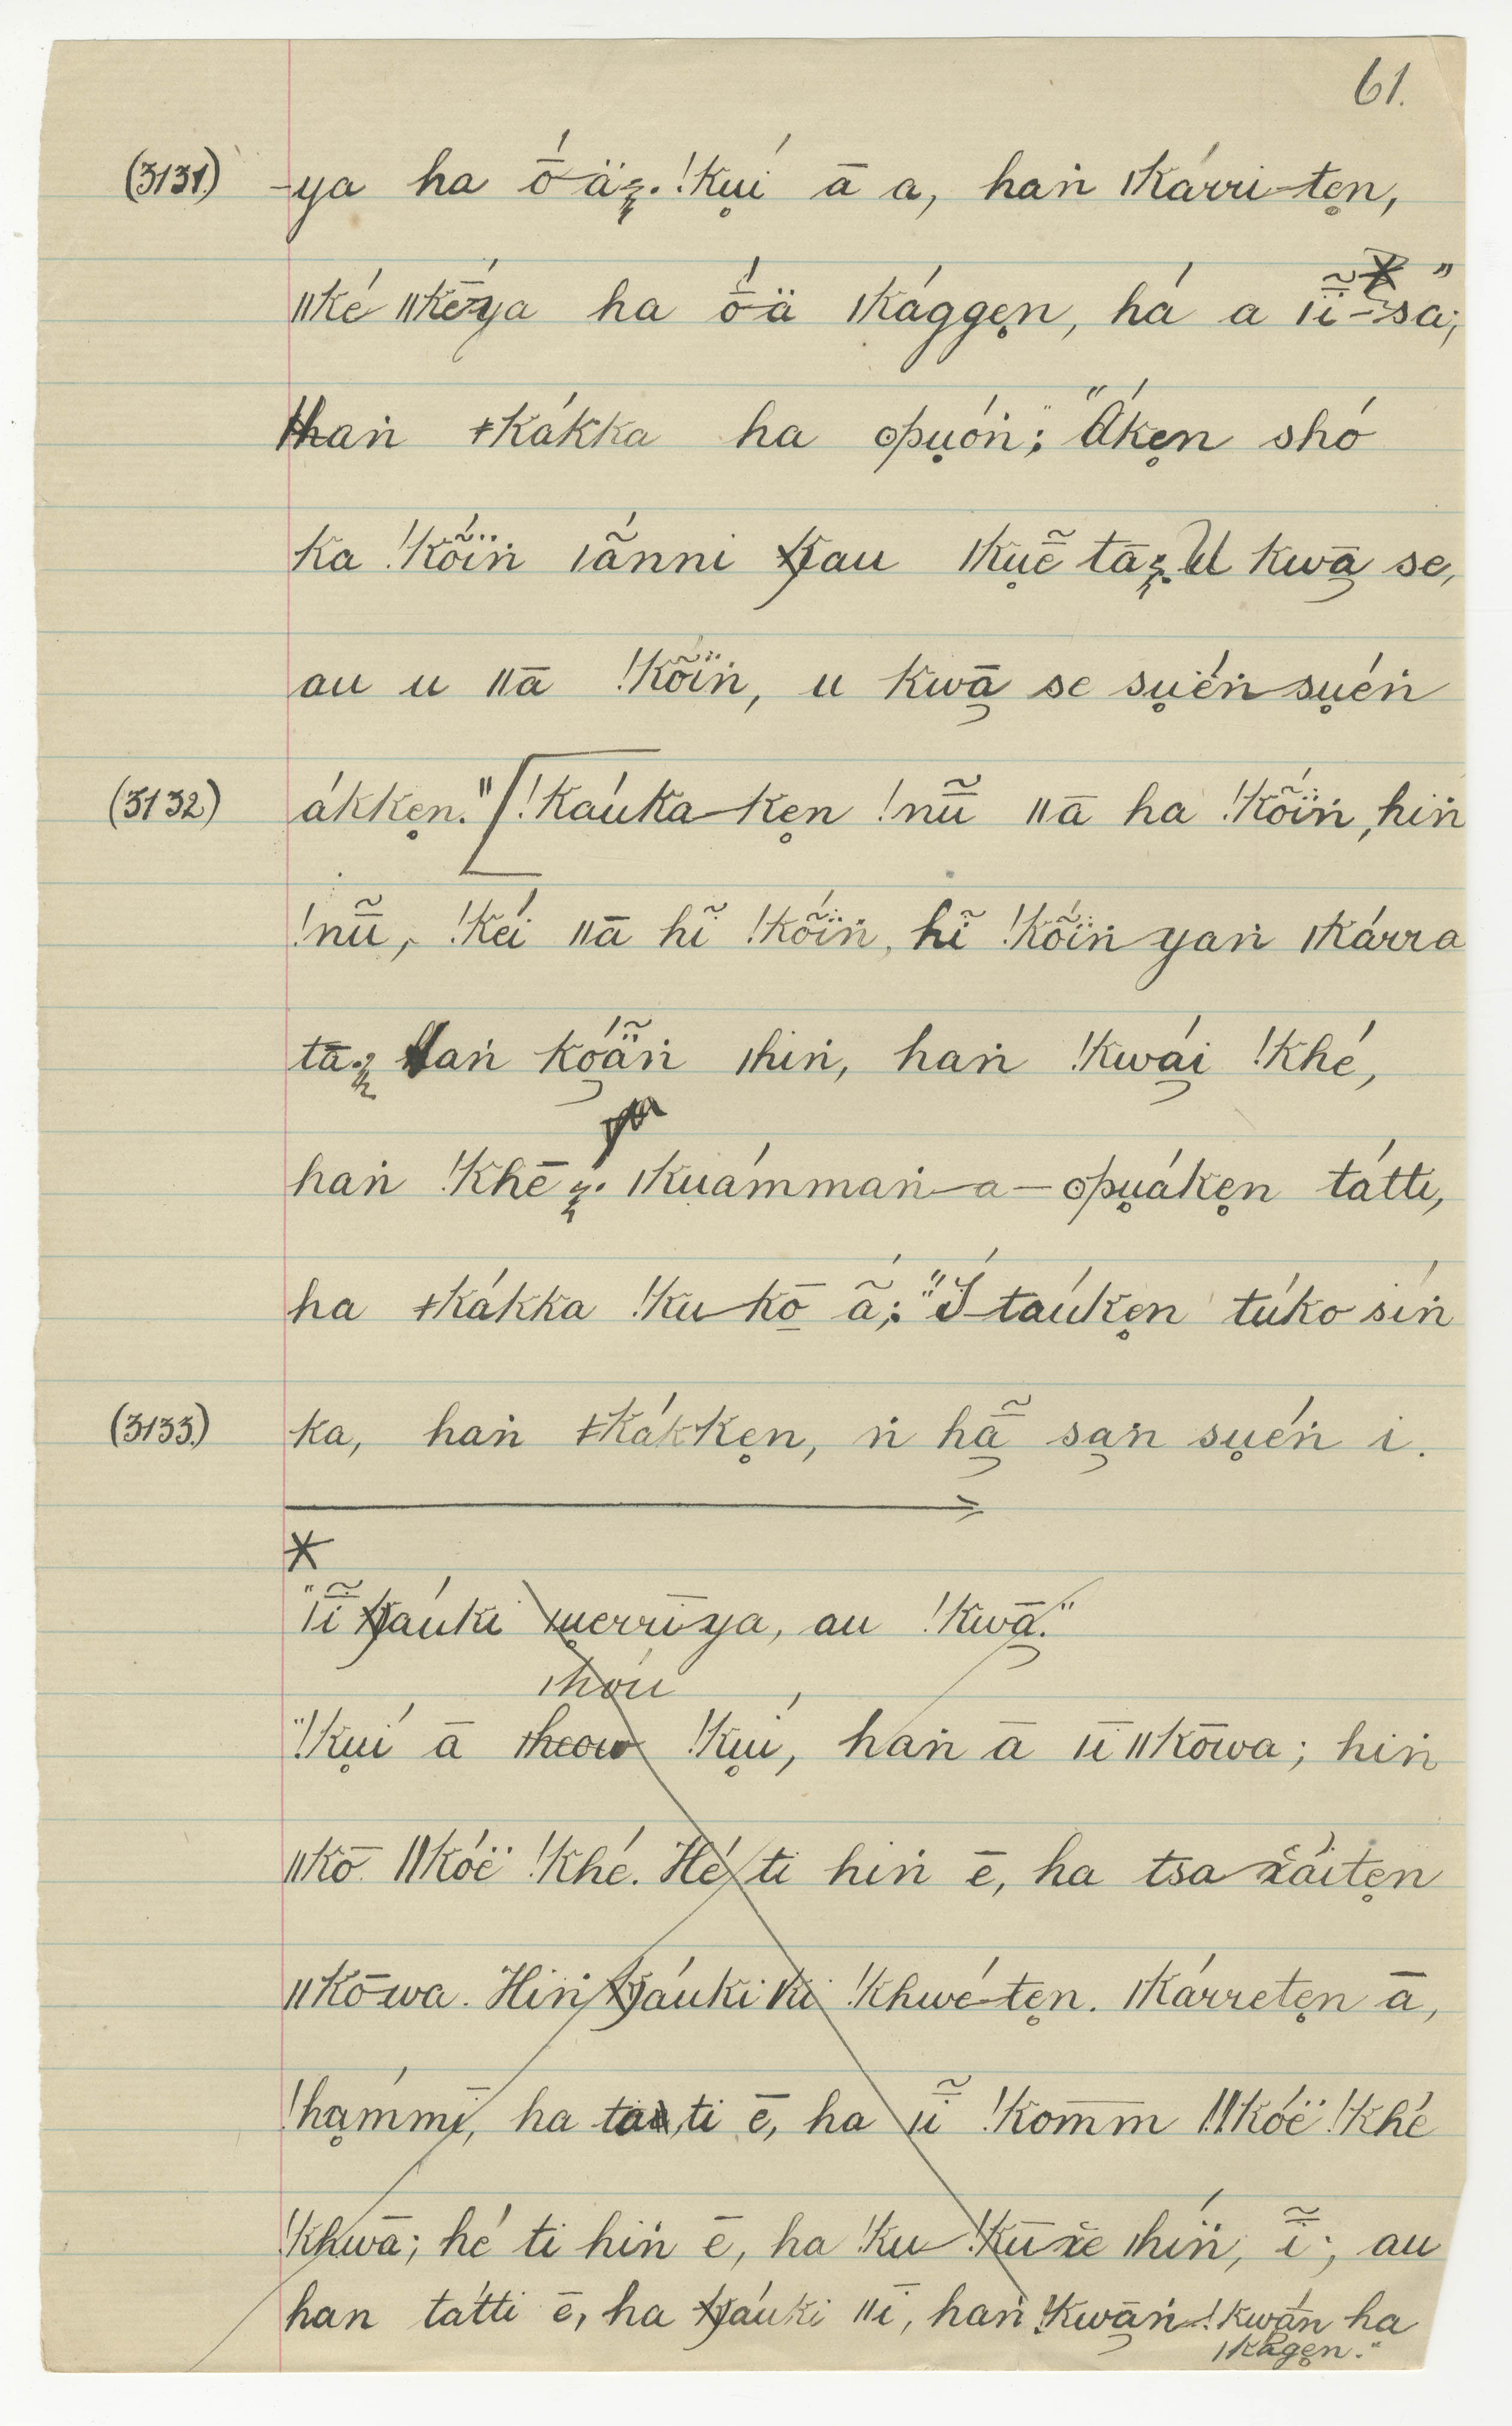 61.
(3131.) -ya ha ṓä̠. !ku̥í ā a, haṅ ǀkárri-te̥n,
ǁké ǁkḗya ha ṓä ǀkágge̥n, há a ǀı̃̄-sa;"
haṅ ǂkákka ha ʘpu̥óṅ; "Áke̥n shó
ka !kṏ́ïṅ ǀã́nni ꭓau ǀku̥ẽ̄ tā̠. U kwā̠ se,
au u ǁā !kṏ́ïṅ, u kwā̠ se su̥éṅ-su̥éṅ
(3132) ákke̥n." [!káuka-ke̥n !nũ̄ ǁā ha !kṏ́ïṅ, hiṅ
!nũ̄, !kéi ǁā hĩ !kṏ́ïṅ, hĩ !kṏ́ïṅ yaṅ ǀkárra
tā̠. Haṅ ko̠ä̃́ṅ ǀhiṅ, haṅ !kwá̠i !khé,
haṅ !khē̠. ǀkuámmaṅ-a-ʘpu̥áke̥n tátti,
ha ǂkákka !ku-kō̠ ã́; "Í-táuke̥n túko síṅ
(3133.) ka, haṅ ǂkákke̥n, ṅ hã̠̄ sa̠ṅ su̥éṅ i.
*
"ǀı̃̄ ꭓáuki ꭓu̥errīya, au !kwā̠."
ǀhóu
"!ku̥í ā !ku̥í, haṅ ā ǀī ǁkōwa; hiṅ
ǁkō ǁkóë !khé. Hé ti hiṅ ē, ha tsa ꭓáite̥n
ǁkōwa. Hiṅ ꭓáuki ki !khwé-te̥n. ǀkárrete̥n ā,
!hḁmmī, ha ta, ti ē, ha ǀı̃̄ !kom̄m ǁkóë !khé
!khwā; hé ti hiṅ ē, ha !ku-!kūẍe ǀhíṅ, ı̃̄; au
han tátti ē, ha ꭓáuki ǁī, haṅ !kwā̠ṅ-!kwā́n ha
ǀkāge̥n."